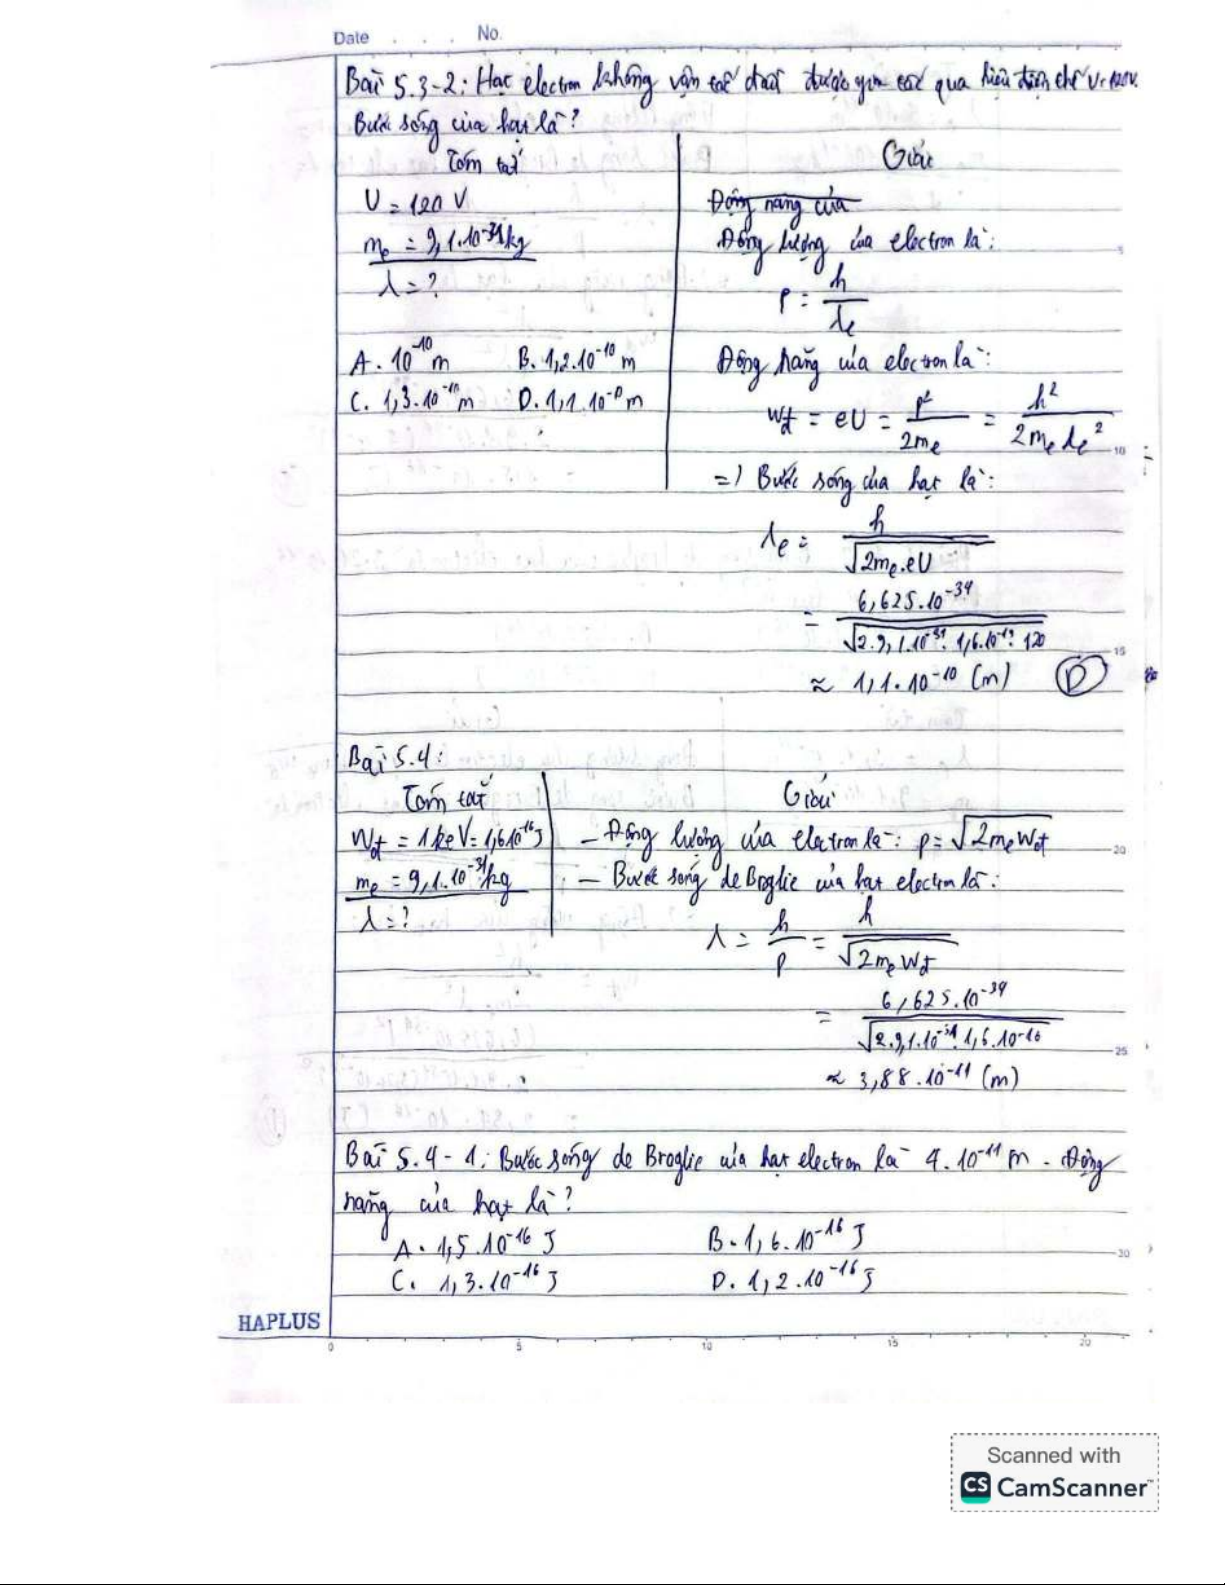 Date . . . . No.
Bài 5.3-2: Hạt electron không vận tốc đầu được gia tốc qua hiệu điện thế U=120V.
Bước sóng của hạt là?
Tóm tắt
U = 120 V
me = 9,1.10^-31 kg
λ = ?
A. 10^-10 m B. 1,2.10^-10 m
C. 1,3.10^-10 m D. 1,1.10^-10 m
Giải
Động năng của
Động lượng của electron là:
p = h / λe
Động năng của electron là:
Wđ = eU = p² / 2me = h² / 2me λe²
=) Bước sóng của hạt là:
λe = h / √2me.eU
= 6,625.10^-34 / √2.9,1.10^-31.1,6.10^-19.120
≈ 1,1.10^-10 (m) D
Bài 5.4:
Tóm tắt
Wđ = 1 keV = 1,6.10^-16 J
me = 9,1.10^-31 kg
λ = ?
Giải
- Động lượng của electron là: p = √2meWđ
- Bước sóng de Broglie của hạt electron là:
λ = h / p = h / √2meWđ
= 6,625.10^-34 / √2.9,1.10^-31.1,6.10^-16
≈ 3,88.10^-11 (m)
Bài 5.4-1: Bước sóng de Broglie của hạt electron là 4.10^-11 m. Động
năng của hạt là?
A. 1,5.10^-16 J B. 1,6.10^-16 J
C. 1,3.10^-16 J D. 1,2.10^-16 J
HAPLUS
0 5 10 15 20
5
10
15
20
25
30
Scanned with
CS CamScanner™